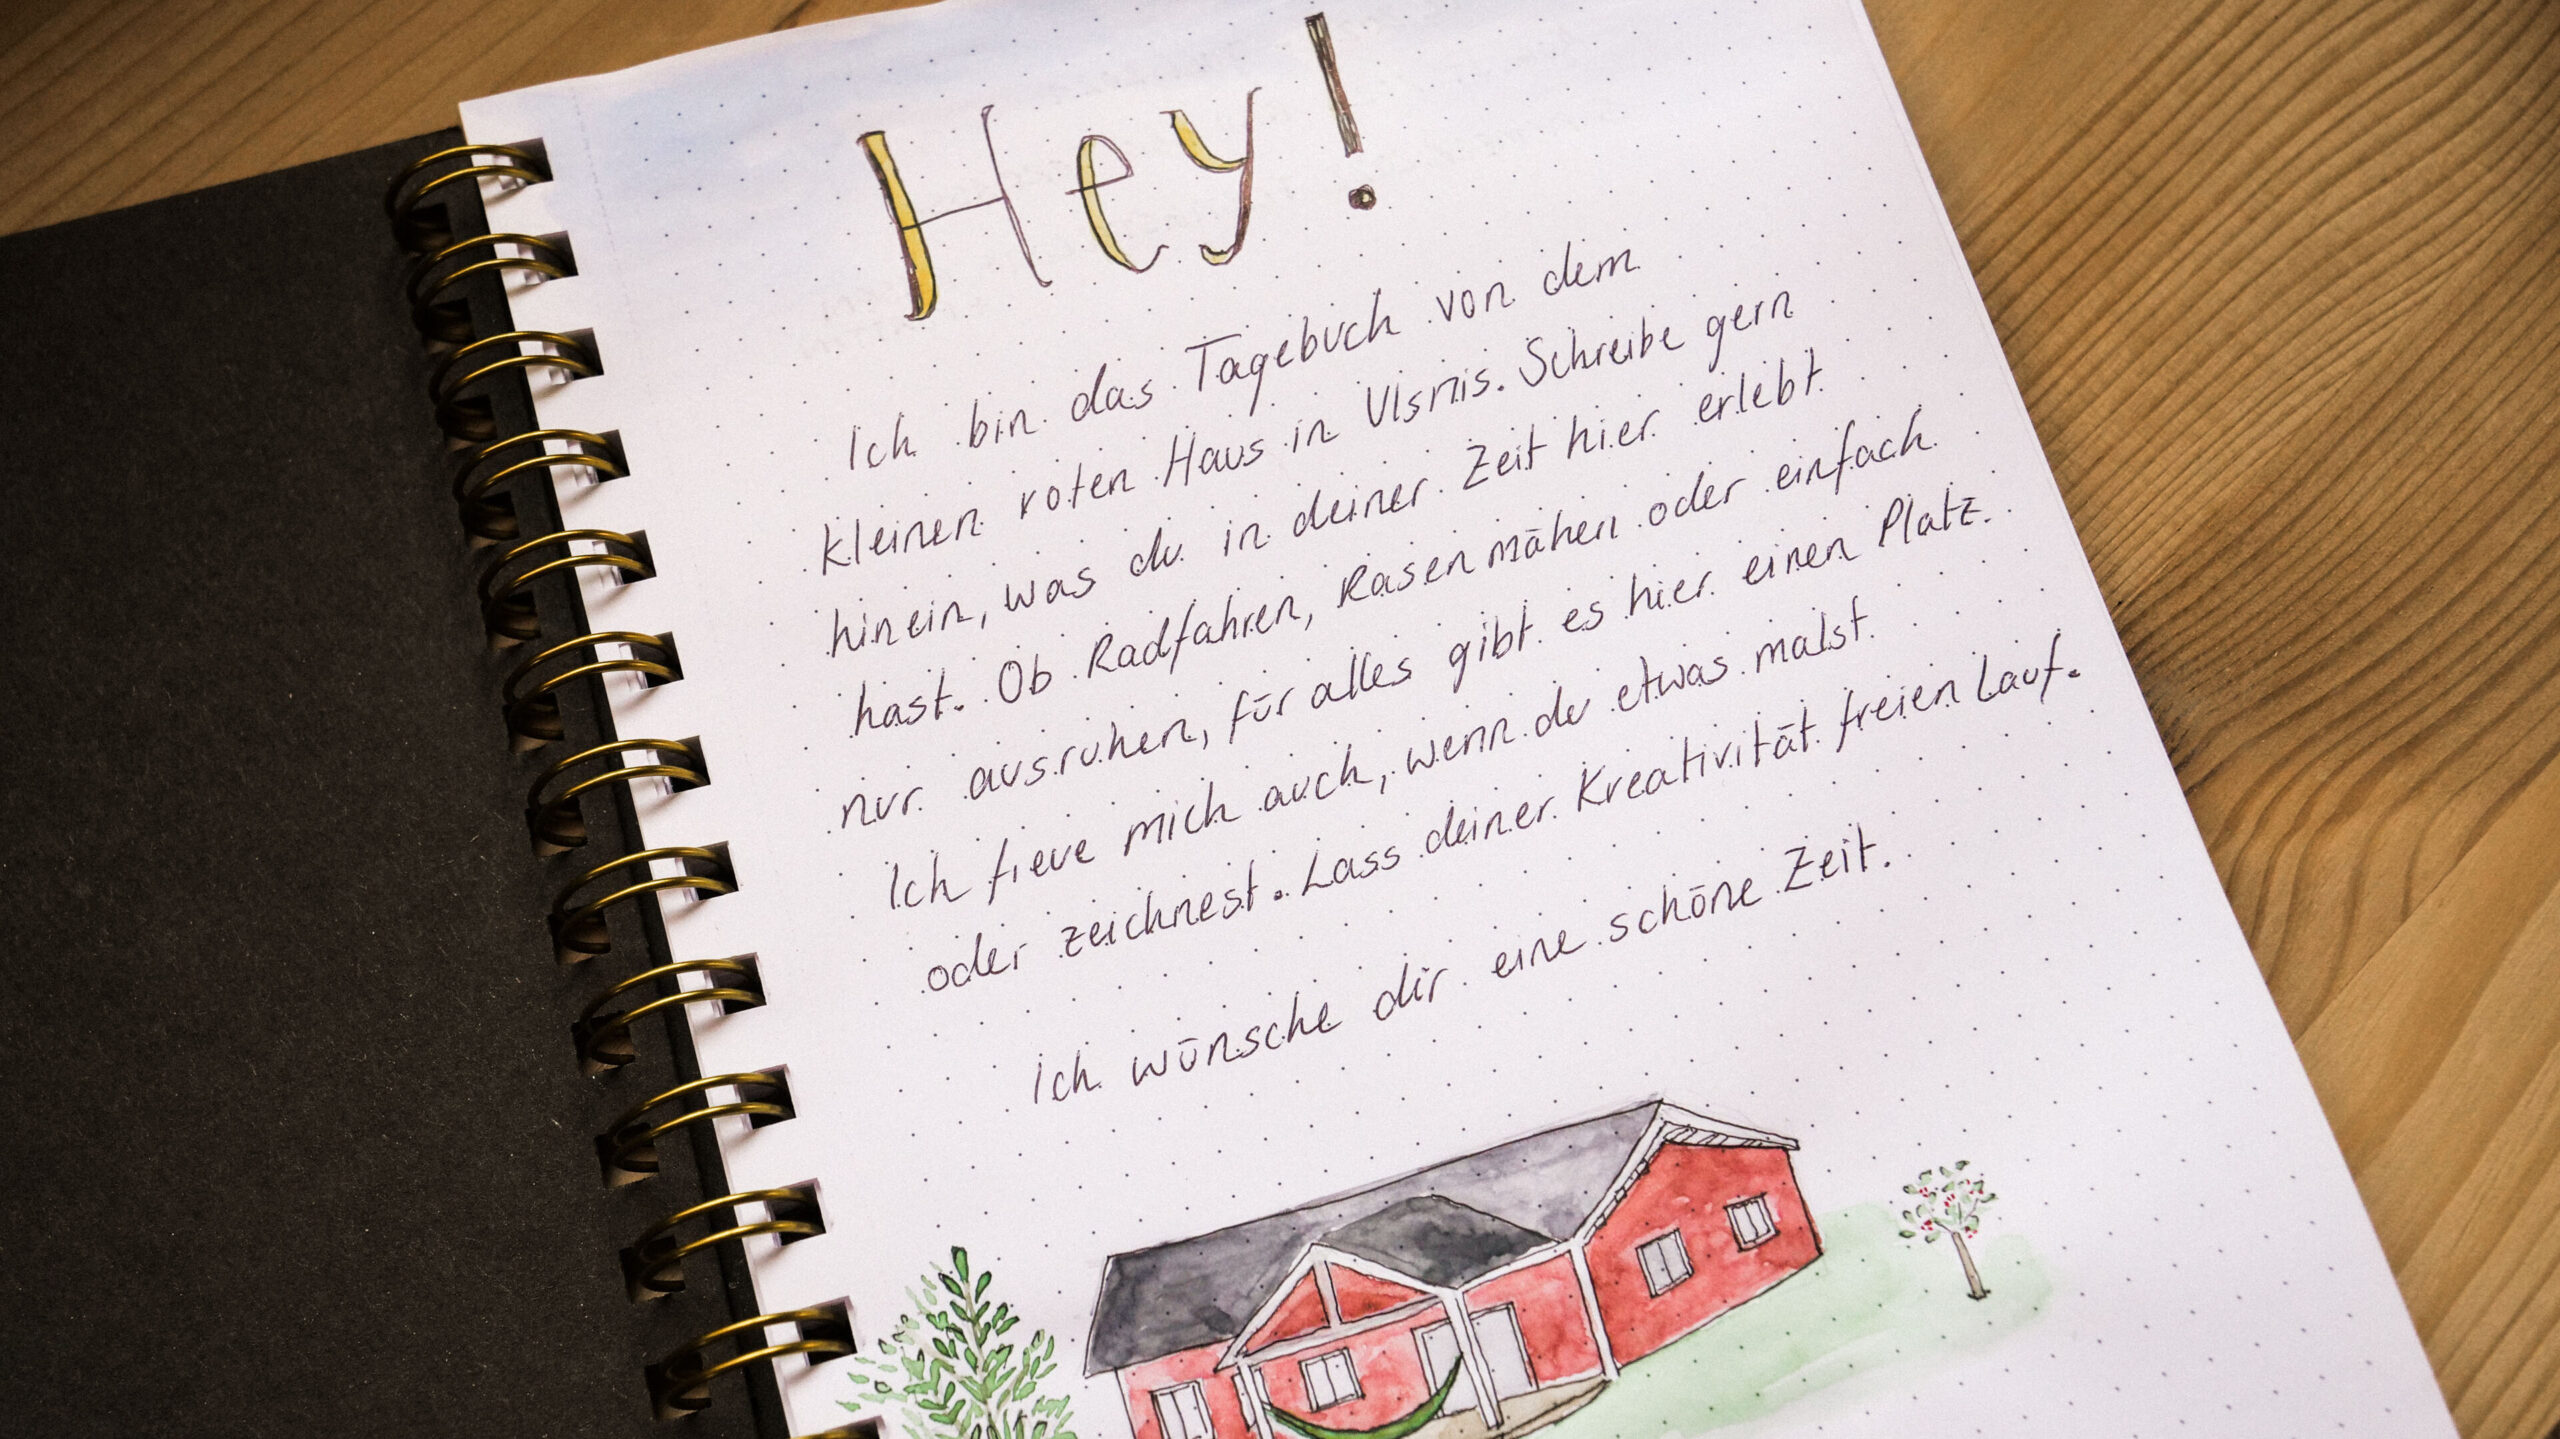 Hey!
Ich bin das Tagebuch von dem
kleinen roten Haus in Vlsnis. Schreibe gern
hinein, was du in deiner Zeit hier erlebt
hast. Ob Radfahren, Rasen mähen oder einfach
nur ausruhen, für alles gibt es hier einen Platz.
Ich freue mich auch, wenn du etwas malst
oder zeichnest. Lass deiner Kreativität freien Lauf.
Ich wünsche dir eine schöne Zeit.